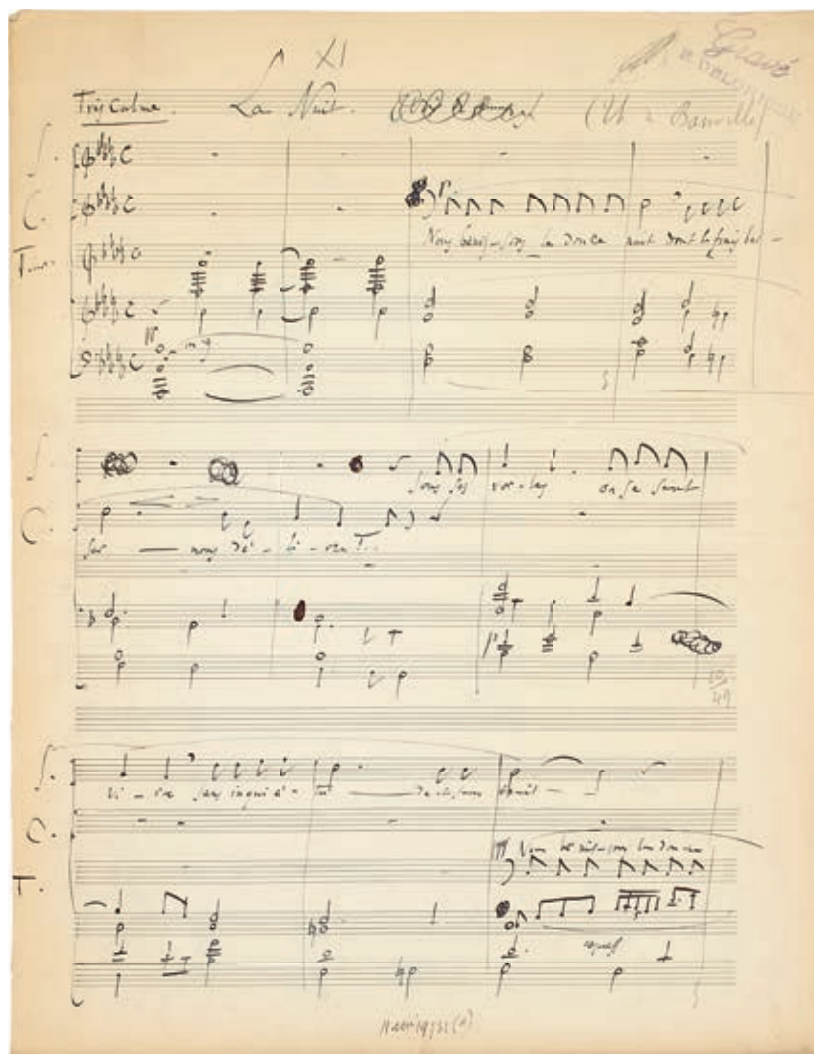 XI
Gravé
R. DALONNEAU
Très Calme. La Nuit. (Th de Banville)
S.
C. Nous bénis-sons la douce nuit dont le frais bai-
Ten.
S. Sous ses voi-les on se sent
C. ser — nous dé-li-vre.
10/49
S. vi-vre sans inquié-tu — de et sans bruit —
C.
T. Nous bé nis-sons la douce